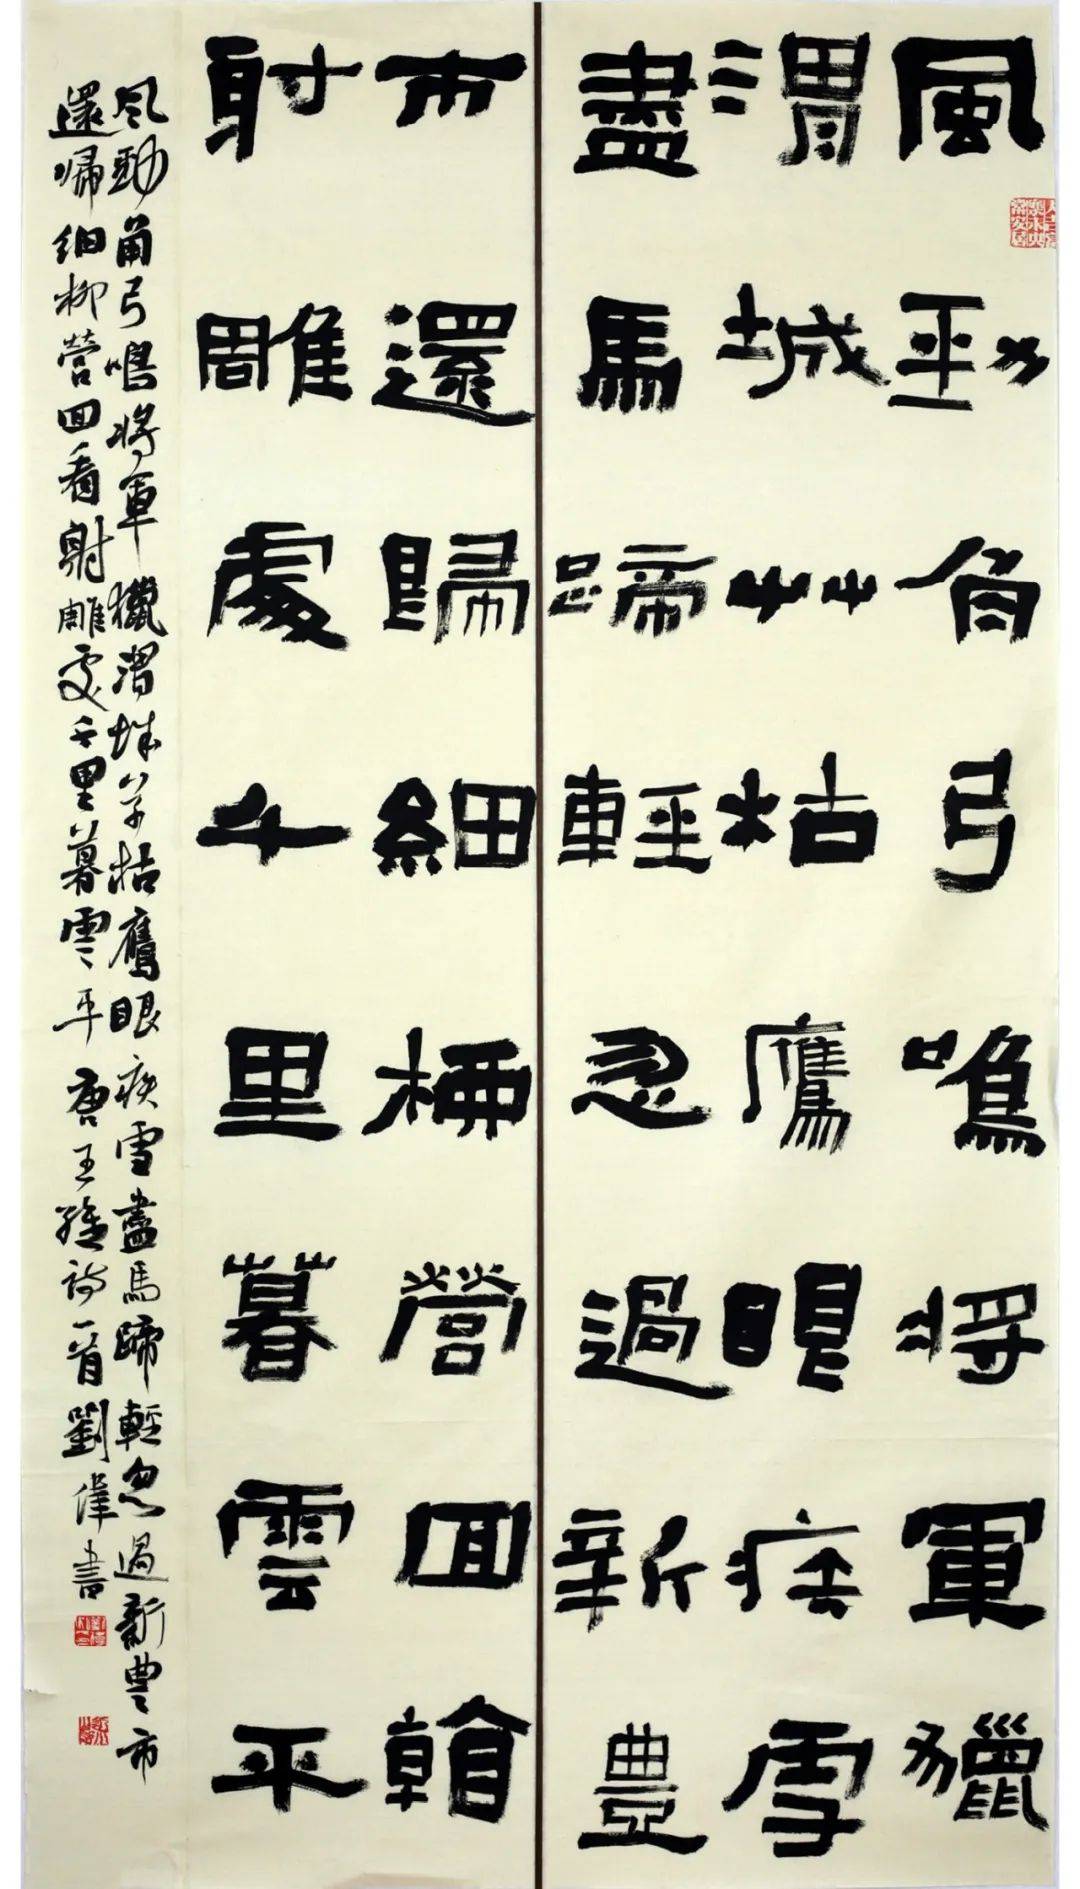 風勁角弓鳴將軍獵
渭城艸枯鷹眼疾雪
盡馬蹄輕忽過新豐
市還歸細柳營回䩤
射雕處千里暮雲平
風勁角弓鳴將軍獵渭城草枯鷹眼疾雪盡馬蹄輕忽過新豐市
還歸細柳營回看射雕處千里暮雲平 唐王維詩一首 劉偉書